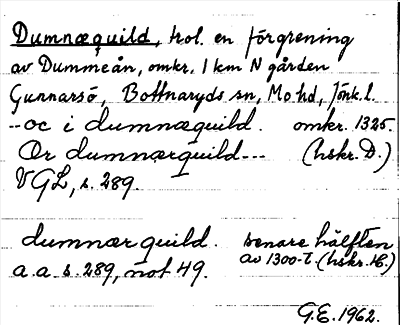 Dumnæquild, trol. en förgrening
av Dummeån, omkr. 1 km N gården
Gunnarsö, Bottnaryds sn, Mo hd, Jönk. l.
--oc i dumnæquild. omkr. 1325.
Or dumnærquild--- (hskr. D.)
VGL, s. 289.
dumnær quild. senare hälften
a.a. s. 289, not 49. av 1300-t. (hskr. H.)
G.E. 1962.